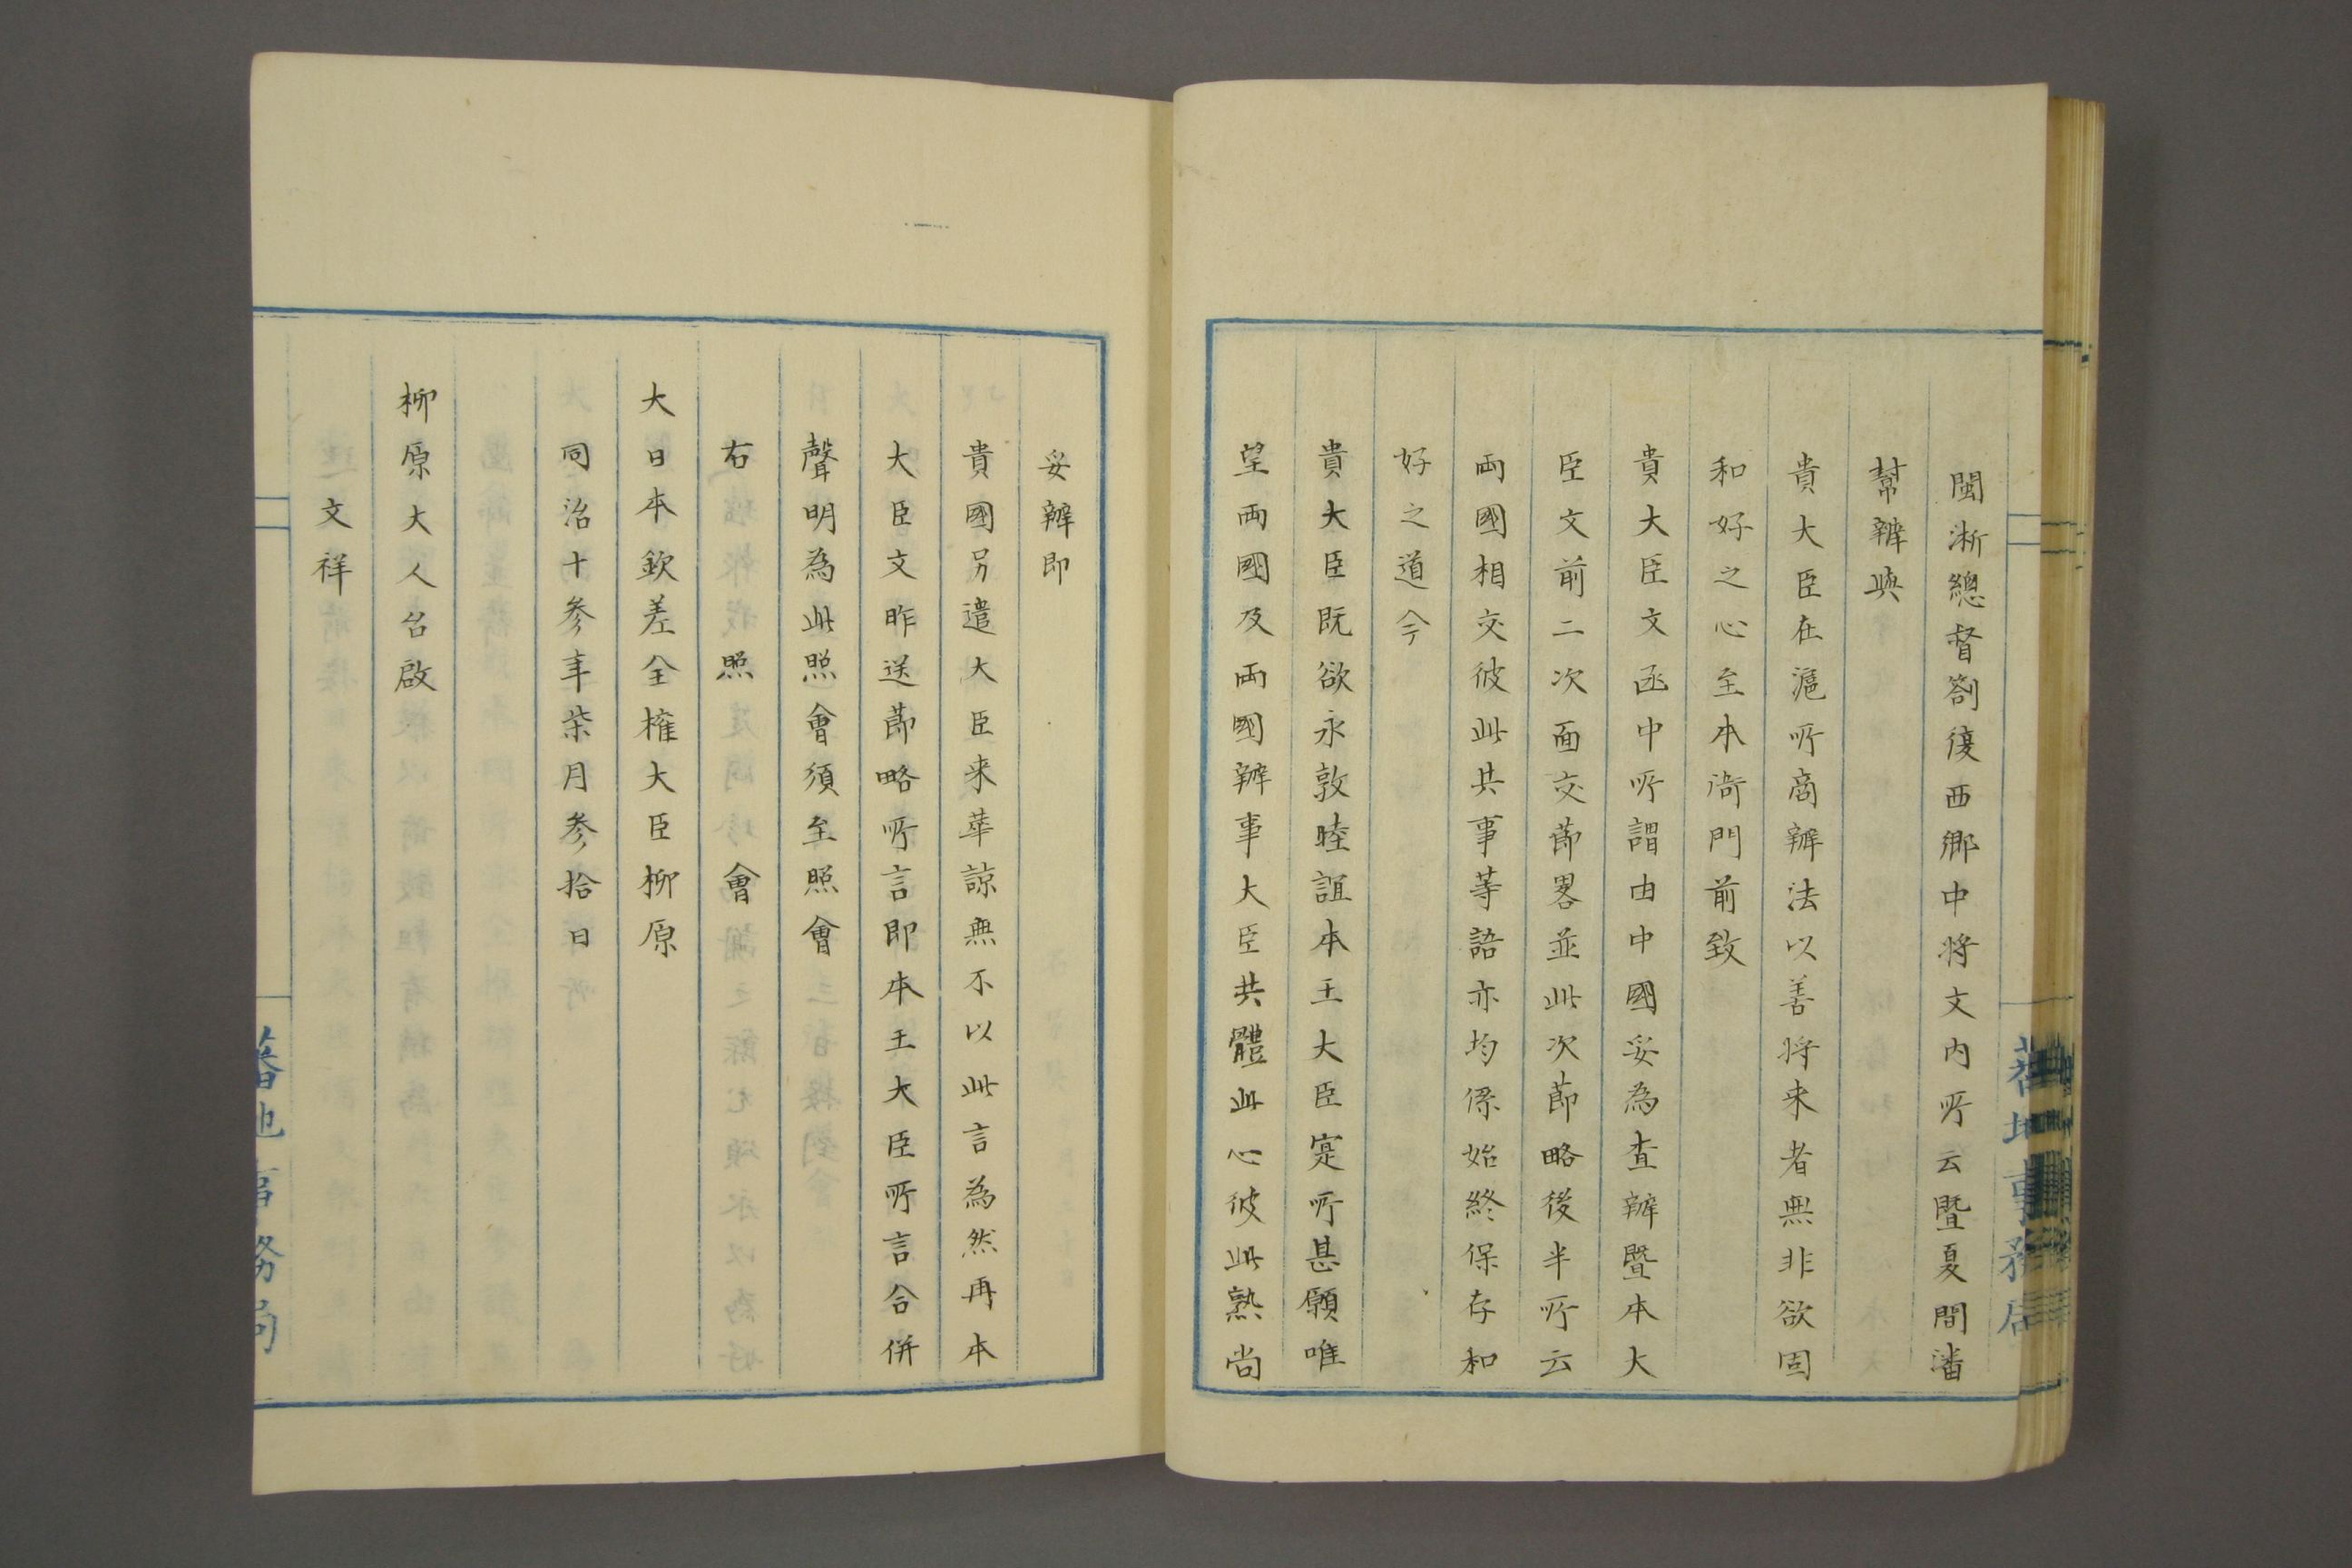 閩淅總督劄復西鄉中将文内所云暨夏間潘
幫辦與
貴大臣在滬所商辦法以善将来者無非欲固
和好之心至本衙門前致
貴大臣文函中所謂由中國妥為査辦暨本大
臣文前二次面交節畧並此次節略後半所云
両國相交彼此共事等語亦均係始終保存和
好之道今
貴大臣既欲永敦睦誼本王大臣寔所甚願唯
望両國及両國辦事大臣共體此心彼此熟尚
妥辦即
貴國另遣大臣来華諒無不以此言為然再本
大臣文昨送節略所言即本王大臣所言合併
聲明為此照會須至照會
右照會
大日本欽差全權大臣柳原
同治十参年柒月参拾日
柳原大人台啟
文祥
蕃地事務局